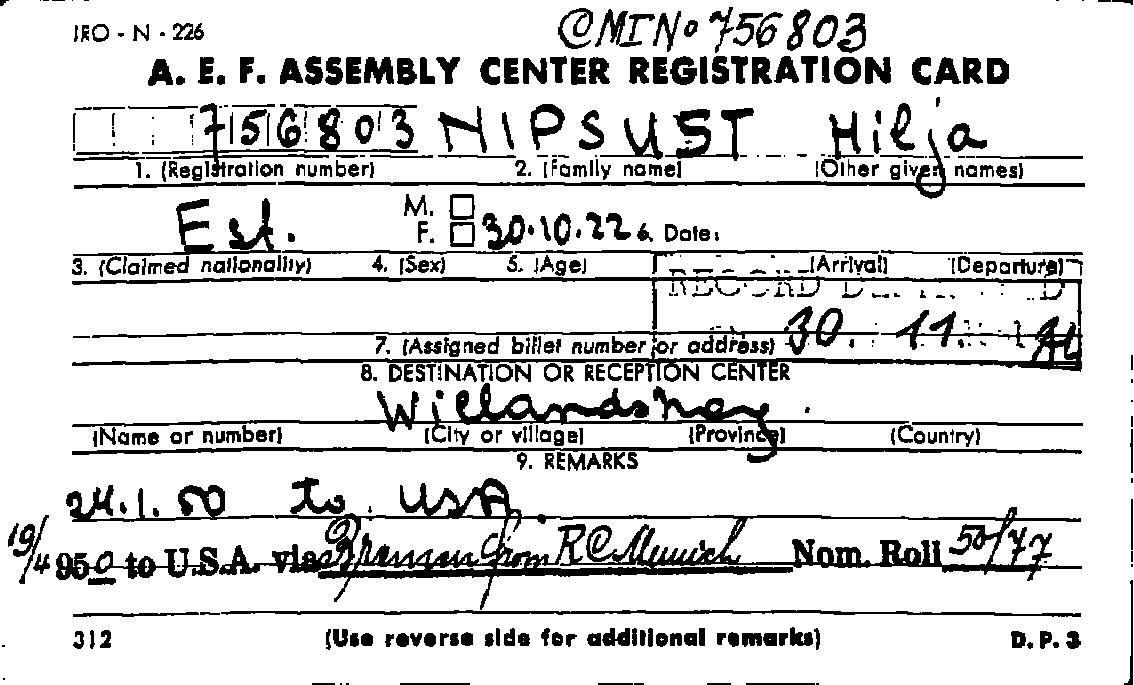 IRO - N - 226
CMIN° 756803
A. E. F. ASSEMBLY CENTER REGISTRATION CARD
756803 NIPSUST Hilja
1. (Registration number) 2. (Family name) (Other given names)
Est. M. F. 30.10.22 6. Date:
3. (Claimed nationality) 4. (Sex) 5. (Age) (Arrival) (Departure)
RECORD
30. 11.
7. (Assigned billet number or address)
8. DESTINATION OR RECEPTION CENTER
(Name or number) (City or village) (Province) (Country)
9. REMARKS
24.1.50 to USA.
19/4 950 to U.S.A. via Bremen from RC Munich Nom. Roll 50/77
312 (Use reverse side for additional remarks) D. P. 3